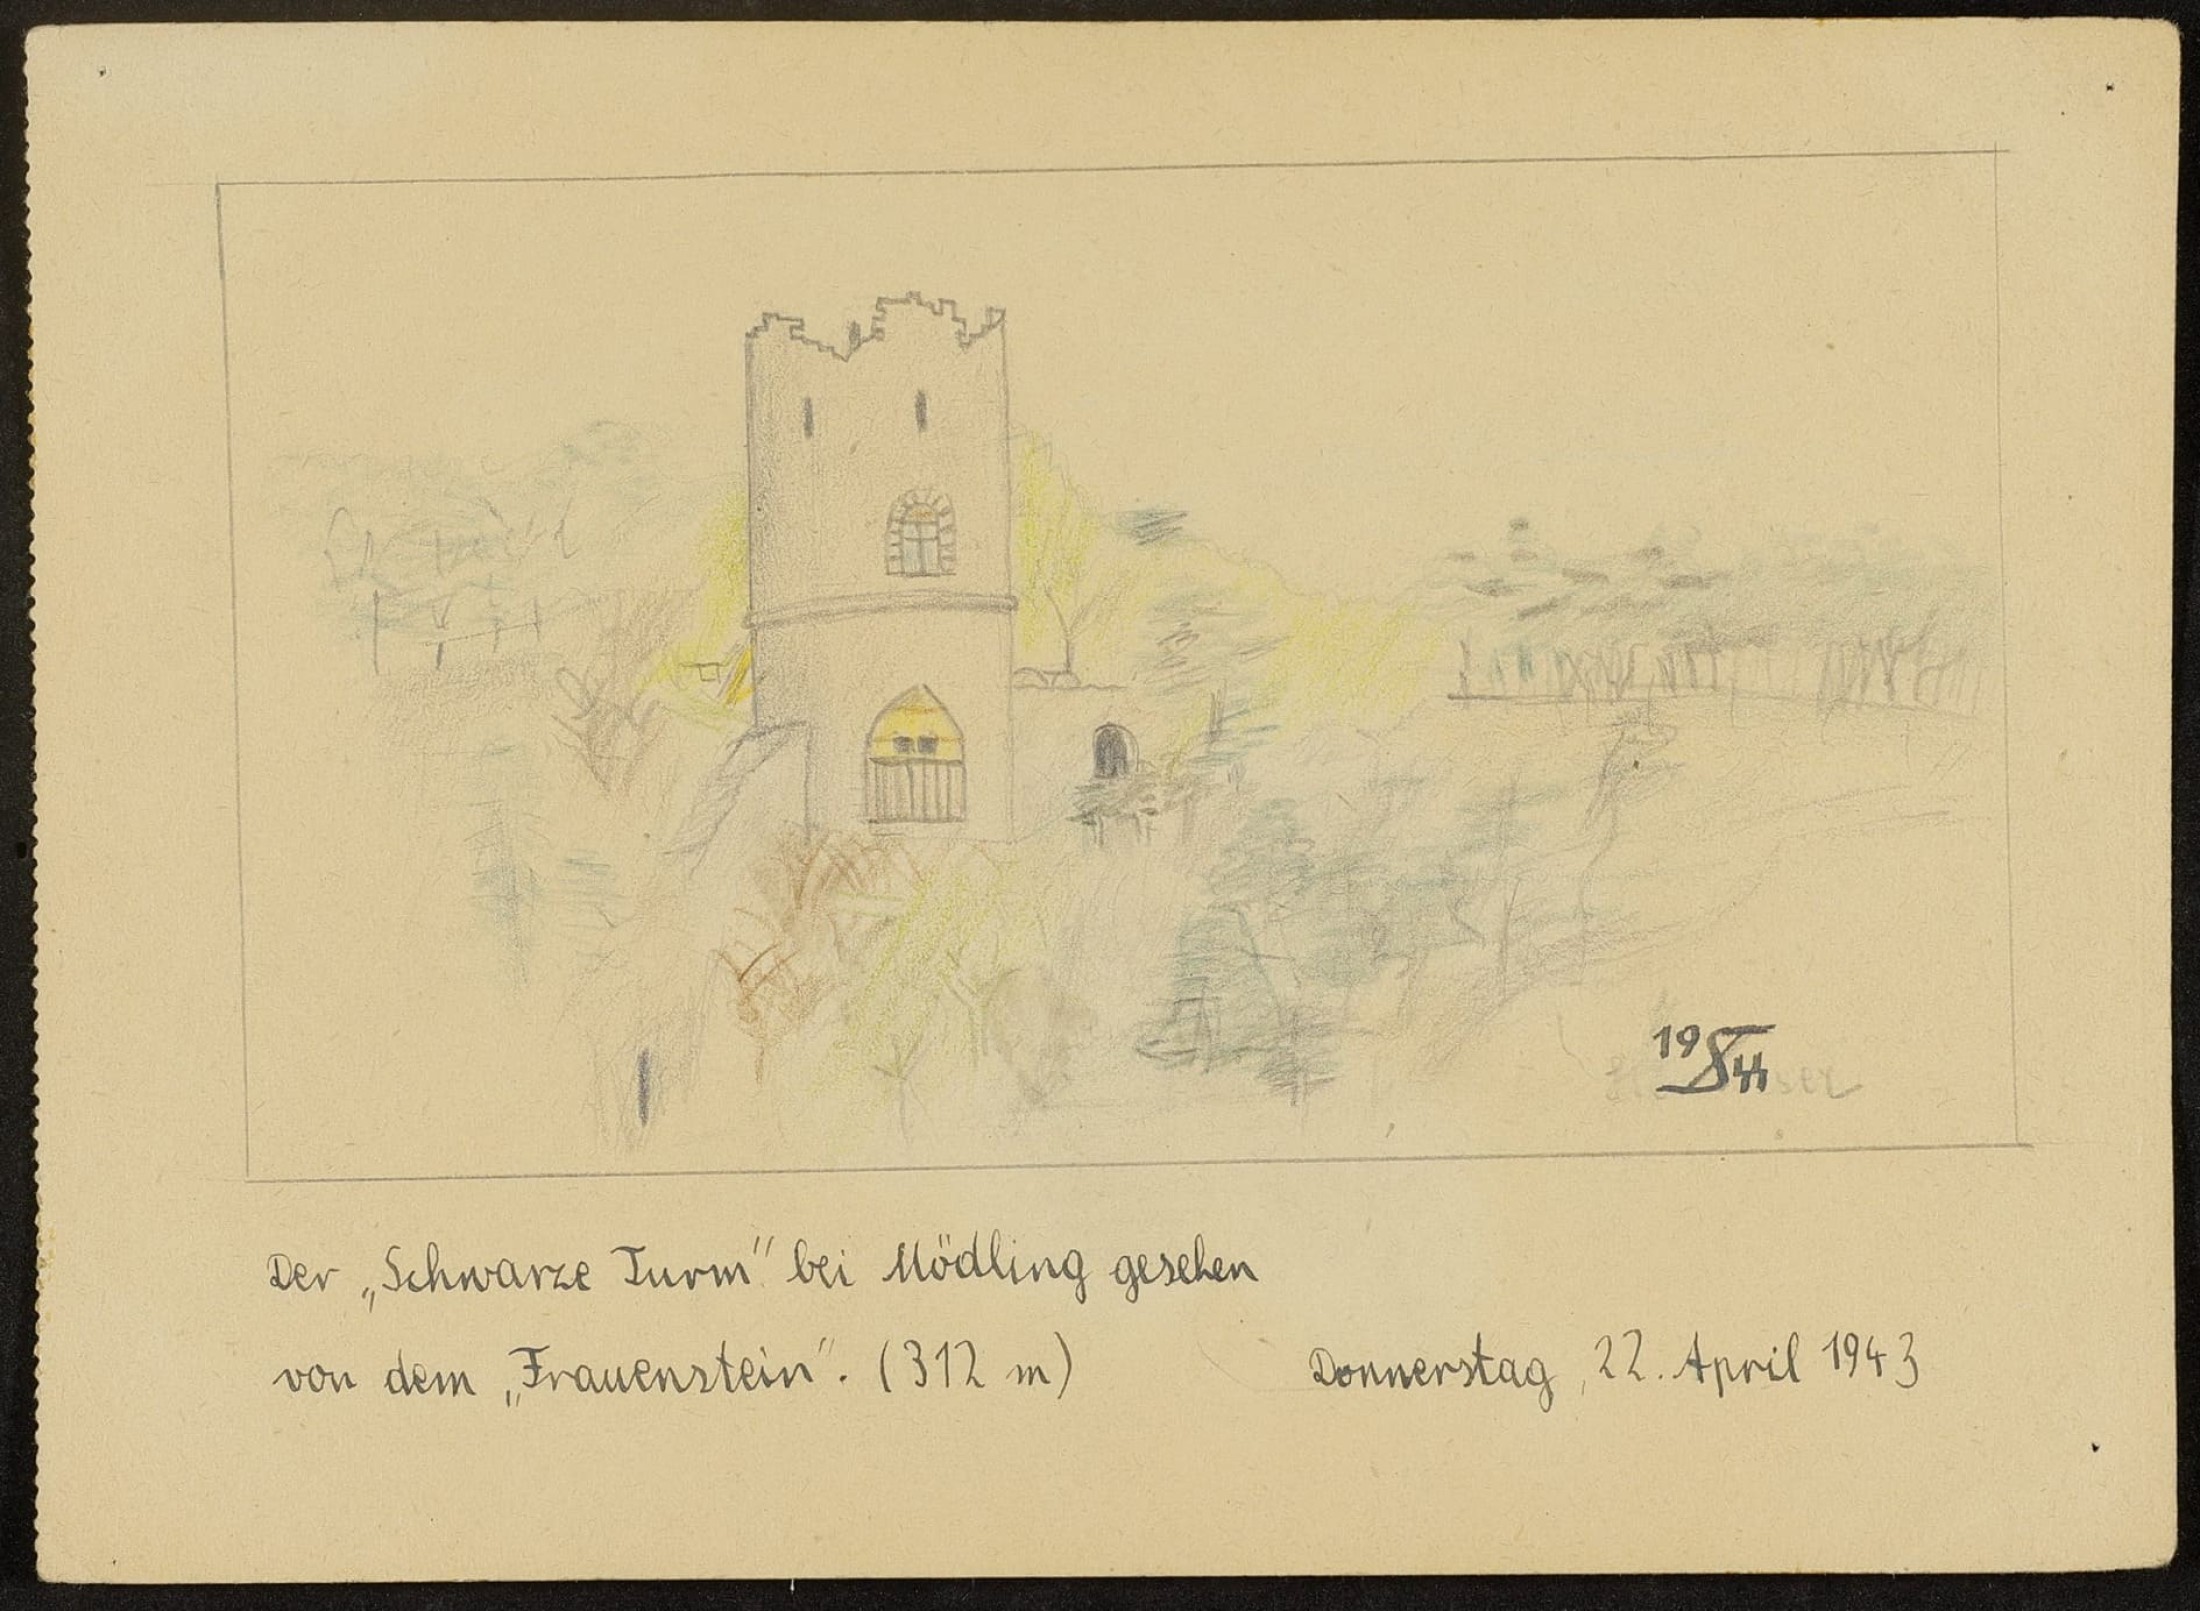 19
Der „Schwarze Turm" bei Mödling gesehen
von dem „Frauenstein". (312 m)
Donnerstag, 22. April 1943